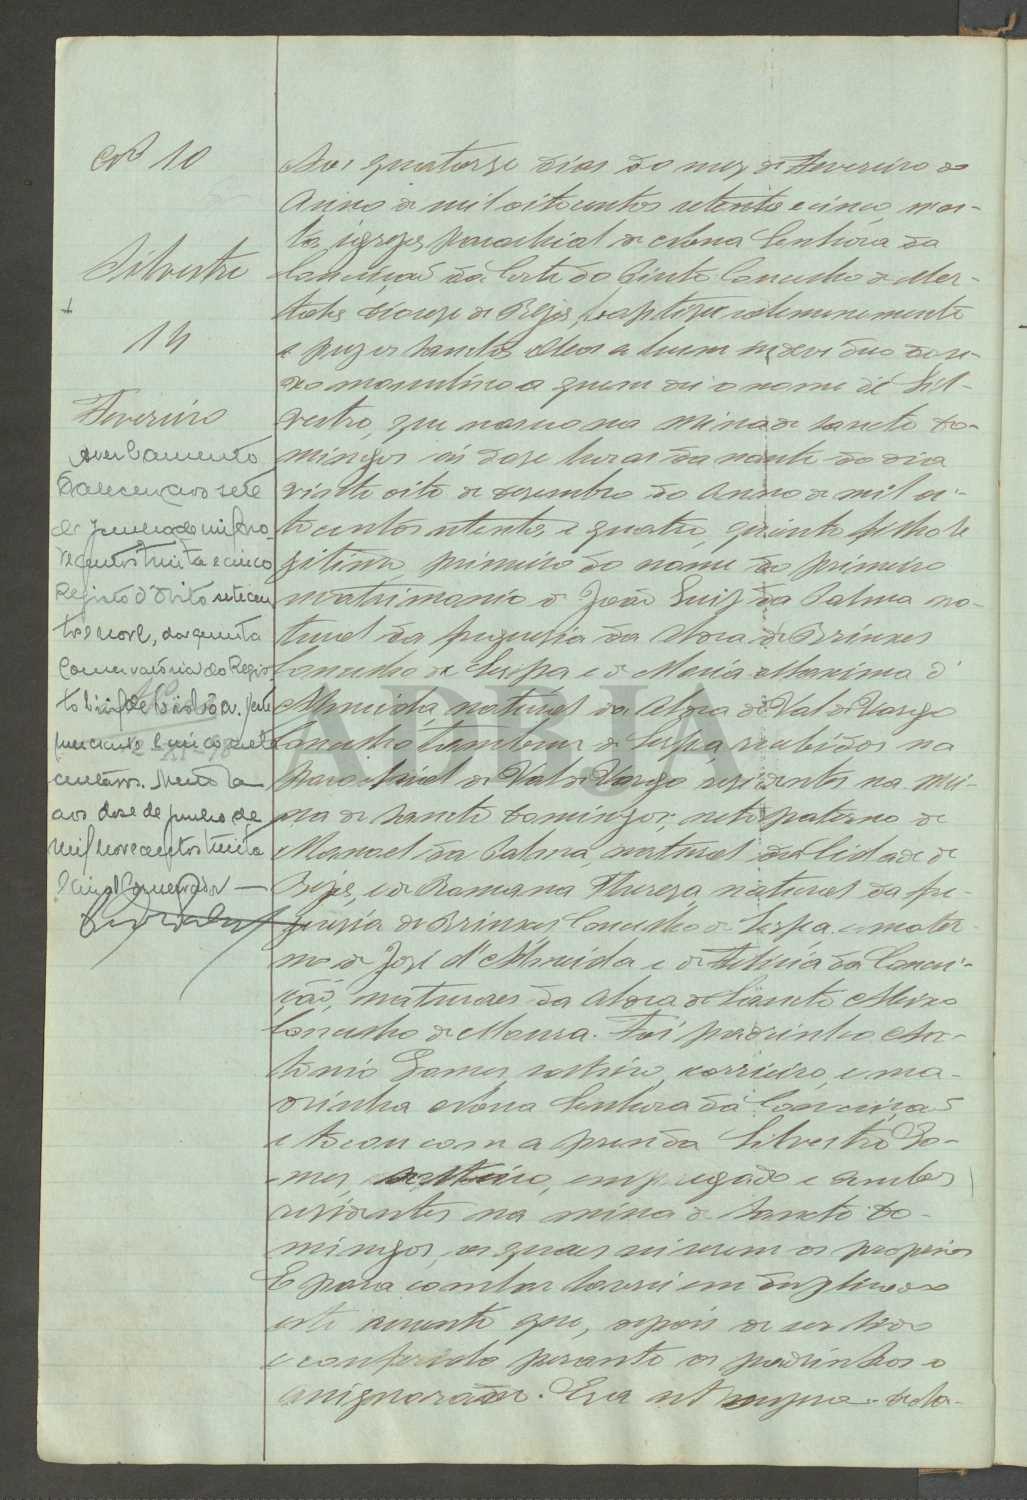 Nº 10
Silvestre
14
Fevereiro
Averbamento
Faleceu aos sete
de junho de mil no-
vecentos trinta e cinco
Registo d'Obito setecen
tos e nove, da quinta
Conservatória do Regis
to Civil de Lisboa.
aos doze de junho de
mil novecentos trinta
e cinco O Conservador
Aos quatorze dias do mez de Fevereiro do
Anno de mil oitocentos setenta e cinco, nes-
ta igreja parochial de Nossa Senhora da
Conceição da Corte do Pinto Concelho de Mer-
tola, Diocese de Beja, baptizei solemnemente
e puz os sanctos oleos a hum individuo do se-
xo masculino a quem dei o nome de Sil-
vestre, que nasceu na Mina de Sancto Do-
mingos ás doze horas da noute do dia
vinte oito de Dezembro do Anno de mil oi-
tocentos setenta e quatro, quinto filho le
gitimo, primeiro do nome do primeiro
matrimonio de João Luiz da Palma na-
tural da freguesia da Aldea de Brinxes
Concelho de Serpa e de Maria Maxima d'
Almeida, natural da Aldea de Val de Vargo
Concelho tambem de Serpa, recebidos na
parochial de Val de Vargo residentes na Mi-
na de Sancto Domingos; neto paterno de
Manoel da Palma, natural da Cidade de
Beja, e de Romana Thereza, natural da fre-
guesia de Brinxes Concelho de Serpa e mater-
no de José d'Almeida e de Felicia da Concei-
ção, naturaes da Aldea de Sancto Aleixo
Concelho de Moura. Foi padrinho An-
tonio Gomes, solteiro, corrieiro, e ma-
drinha Nossa Senhora da Conceição
e tocou com a prenda Silvestre Go-
mes, solteiro, empregado e ambos
residentes na mina de Sancto Do-
mingos, os quaes sei serem os proprios
E para constar lavrei em duplicado
este assento que, depois de ser lido
e conferido perante os padrinhos o
assignarão. Era ut supra.
ADBJA